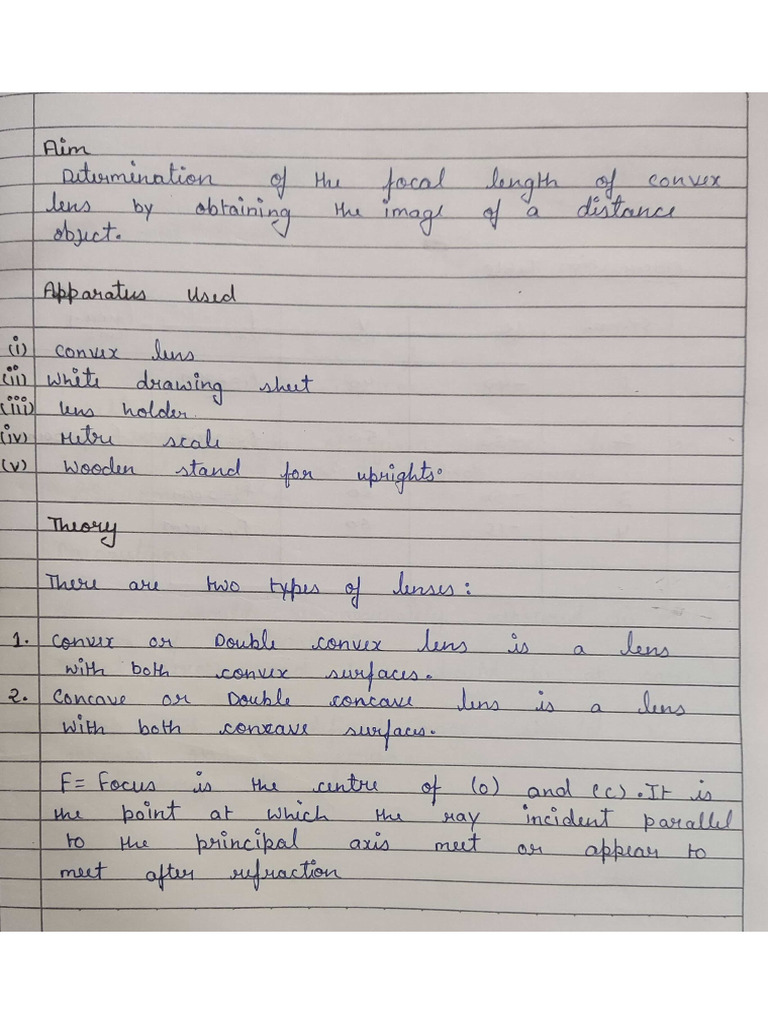 Aim
Determination of the focal length of convex
lens by obtaining the image of a distance
object.
Apparatus Used
(i) convex lens
(ii) White drawing sheet
(iii) lens holder.
(iv) Metre scale
(v) Wooden stand for uprights.
Theory
There are two types of lenses:
1. Convex or Double convex lens is a lens
with both convex surfaces.
2. Concave or Double concave lens is a lens
with both concave surfaces.
F = Focus is the centre of (o) and (c). It is
the point at which the ray incident parallel
to the principal axis meet or appear to
meet after refraction